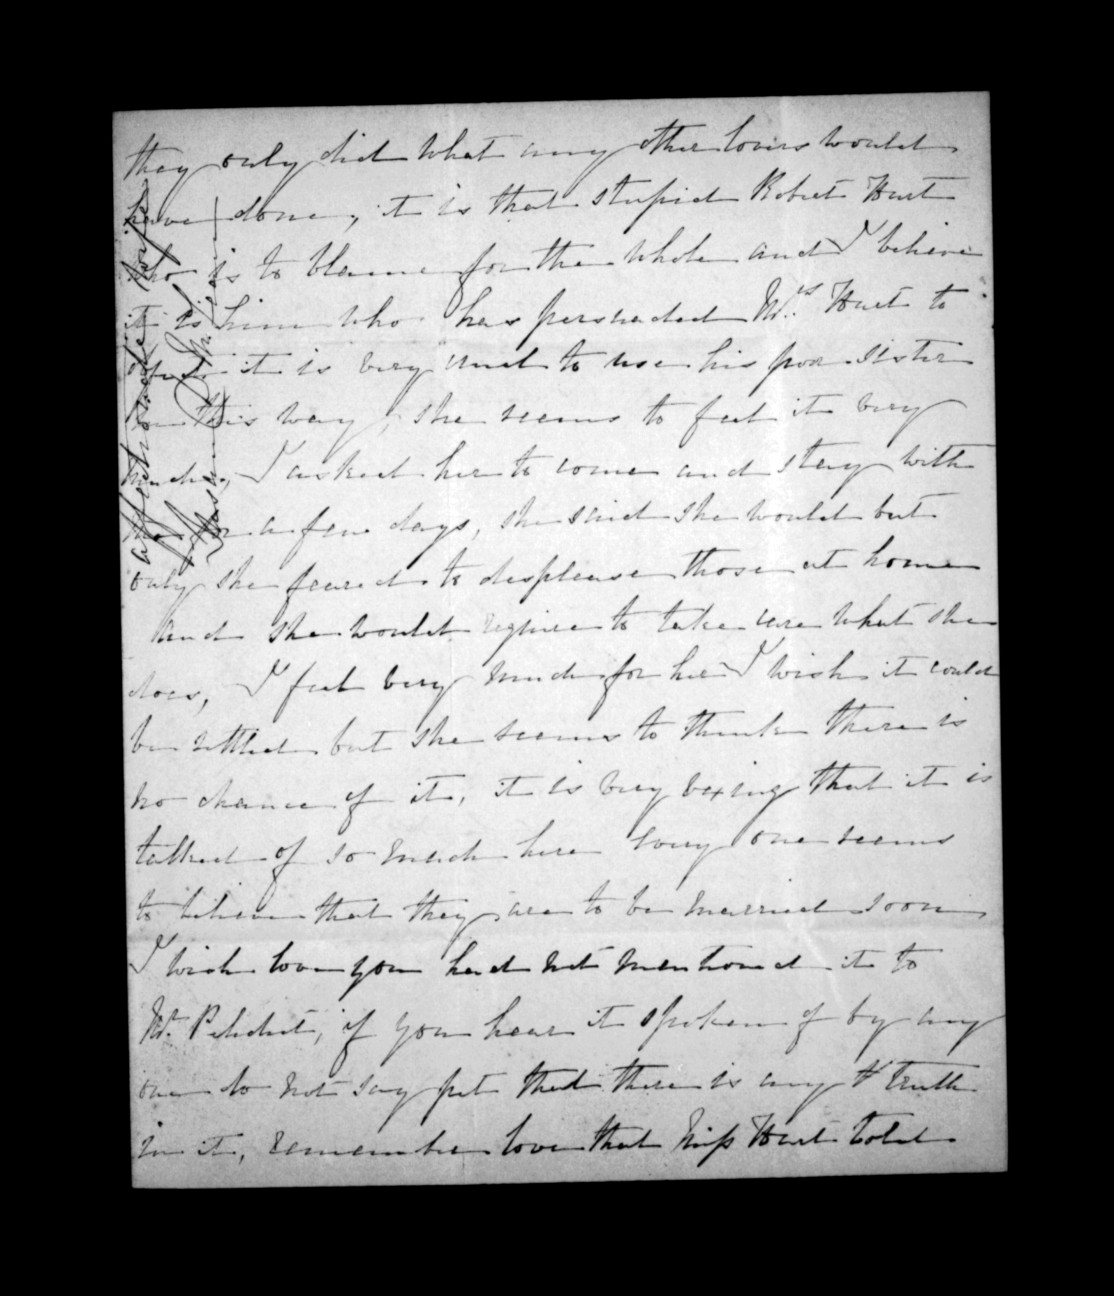 they only did what any other lovers would
have done, it is that stupid Robert Hart
who is to blame for the whole and I believe
it is him who has persuaded Mrs. Hart to
it is very cruel to use his poor sister
in this way, she seems to feel it very
much, I asked her to come and stay with
me for a few days, she said she would but
only she feared to desplease those at home
and she would require to take care what she
does, I feel very much for her I wish it could
be settled but she seems to think there is
no chance of it, it is very vexing that it is
talked of so much here every one seems
to believe that they are to be married soon
I wish love you had not mentioned it to
Mr. if you hear it spoken of by any
one do not say yet that there is any truth
in it, remember love that Miss Hart told
affectionate wife
Susan